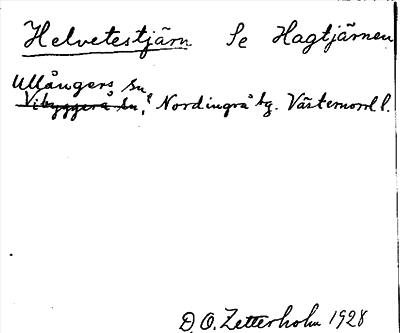 Helvetestjärn Se Hagtjärnen
Ullångers sn,
Vibyggerå sn, Nordingrå tg. Västernorrl l.
D. O. Zetterholm 1928